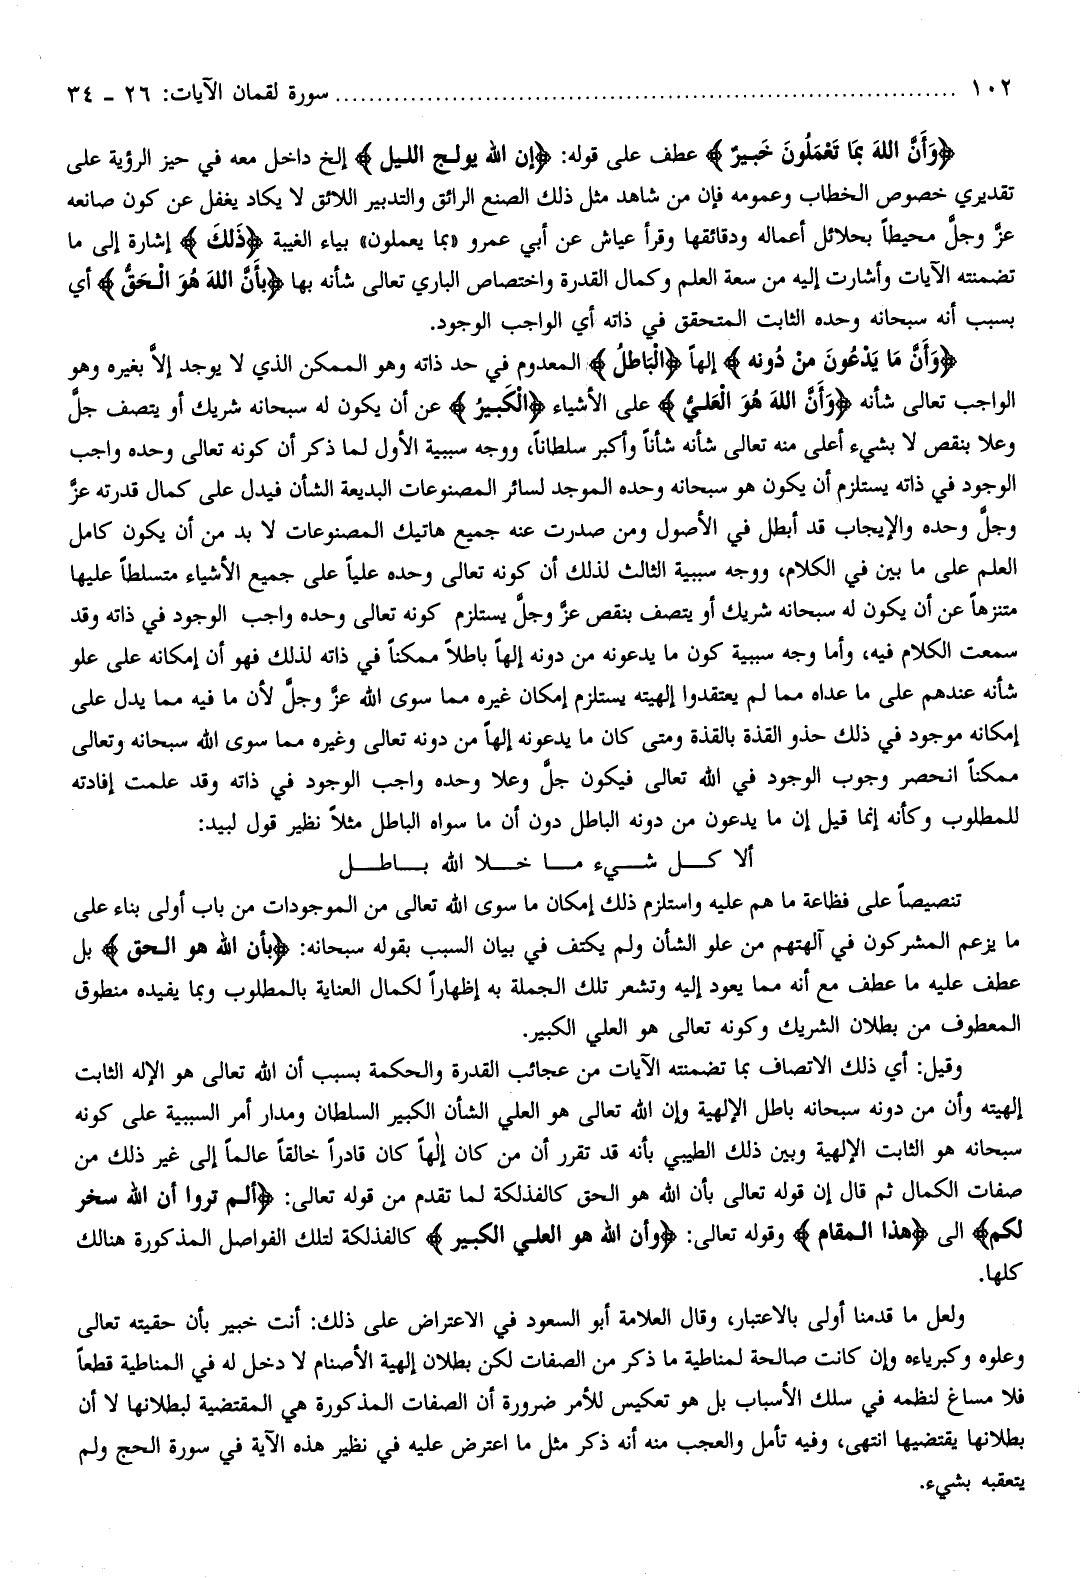 ١٠٢ ........................................ سورة لقمان الآيات: ٢٦ - ٣٤
﴿وَأَنَّ اللهَ بمَا تَعْمَلُونَ خَبيرٌ﴾ عطف على قوله: ﴿إن الله يولج الليل﴾ إلخ داخل معه في حيز الرؤية على
تقديري خصوص الخطاب وعمومه فإن من شاهد مثل ذلك الصنع الرائق والتدبير اللائق لا يكاد يغفل عن كون صانعه
عزَّ وجلَّ محيطاً بجلائل أعماله ودقائقها وقرأ عياش عن أبي عمرو «بما يعملون» بياء الغيبة ﴿ذَلكَ﴾ إشارة إلى ما
تضمنته الآيات وأشارت إليه من سعة العلم وكمال القدرة واختصاص الباري تعالى شأنه بها ﴿بأَنَّ اللهَ هُوَ الْحَقُّ﴾ أي
بسبب أنه سبحانه وحده الثابت المتحقق في ذاته أي الواجب الوجود.
﴿وَأَنَّ مَا يَدْعُونَ منْ دُونه﴾ إلهاً ﴿الْبَاطلُ﴾ المعدوم في حد ذاته وهو الممكن الذي لا يوجد إلاَّ بغيره وهو
الواجب تعالى شأنه ﴿وَأَنَّ اللهَ هُوَ الْعَليُّ﴾ على الأشياء ﴿الْكَبيرُ﴾ عن أن يكون له سبحانه شريك أو يتصف جلَّ
وعلا بنقص لا بشيء أعلى منه تعالى شأنه شأناً وأكبر سلطاناً، ووجه سببية الأول لما ذكر أن كونه تعالى وحده واجب
الوجود في ذاته يستلزم أن يكون هو سبحانه وحده الموجد لسائر المصنوعات البديعة الشأن فيدل على كمال قدرته عزَّ
وجلَّ وحده والإيجاب قد أبطل في الأصول ومن صدرت عنه جميع هاتيك المصنوعات لا بد من أن يكون كامل
العلم على ما بين في الكلام، ووجه سببية الثالث لذلك أن كونه تعالى وحده علياً على جميع الأشياء متسلطاً عليها
متنزهاً عن أن يكون له سبحانه شريك أو يتصف بنقص عزَّ وجلَّ يستلزم كونه تعالى وحده واجب الوجود في ذاته وقد
سمعت الكلام فيه، وأما وجه سببية كون ما يدعونه من دونه إلهاً باطلاً ممكناً في ذاته لذلك فهو أن إمكانه على علو
شأنه عندهم على ما عداه مما لم يعتقدوا إلهيته يستلزم إمكان غيره مما سوى الله عزَّ وجلَّ لأن ما فيه مما يدل على
إمكانه موجود في ذلك حذو القذة بالقذة ومتى كان ما يدعونه إلهاً من دونه تعالى وغيره مما سوى الله سبحانه وتعالى
ممكناً انحصر وجوب الوجود في الله تعالى فيكون جلَّ وعلا وحده واجب الوجود في ذاته وقد علمت إفادته
للمطلوب وكأنه إنما قيل إن ما يدعون من دونه الباطل دون أن ما سواه الباطل مثلاً نظير قول لبيد:
ألا كـل شـيء مـا خـلا الله بـاطـل
تنصيصاً على فظاعة ما هم عليه واستلزم ذلك إمكان ما سوى الله تعالى من الموجودات من باب أولى بناء على
ما يزعم المشركون في آلهتهم من علو الشأن ولم يكتف في بيان السبب بقوله سبحانه: ﴿بأن الله هو الحق﴾ بل
عطف عليه ما عطف مع أنه مما يعود إليه وتشعر تلك الجملة به إظهاراً لكمال العناية بالمطلوب وبما يفيده منطوق
المعطوف من بطلان الشريك وكونه تعالى هو العلي الكبير.
وقيل: أي ذلك الاتصاف بما تضمنته الآيات من عجائب القدرة والحكمة بسبب أن الله تعالى هو الإله الثابت
إلهيته وأن من دونه سبحانه باطل الإلهية وإن الله تعالى هو العلي الشأن الكبير السلطان ومدار أمر السببية على كونه
سبحانه هو الثابت الإلهية وبين ذلك الطيبي بأنه قد تقرر أن من كان إلٰهاً كان قادراً خالقاً عالماً إلى غير ذلك من
صفات الكمال ثم قال إن قوله تعالى بأن الله هو الحق كالفذلكة لما تقدم من قوله تعالى: ﴿ألم تروا أن الله سخر
لكم﴾ الى ﴿هذا المقام﴾ وقوله تعالى: ﴿وأن الله هو العلي الكبير﴾ كالفذلكة لتلك الفواصل المذكورة هنالك
كلها.
ولعل ما قدمنا أولى بالاعتبار، وقال العلامة أبو السعود في الاعتراض على ذلك: أنت خبير بأن حقيته تعالى
وعلوه وكبرياءه وإن كانت صالحة لمناطية ما ذكر من الصفات لكن بطلان إلهية الأصنام لا دخل له في المناطية قطعاً
فلا مساغ لنظمه في سلك الأسباب بل هو تعكيس للأمر ضرورة أن الصفات المذكورة هي المقتضية لبطلانها لا أن
بطلانها يقتضيها انتهى، وفيه تأمل والعجب منه أنه ذكر مثل ما اعترض عليه في نظير هذه الآية في سورة الحج ولم
يتعقبه بشيء.